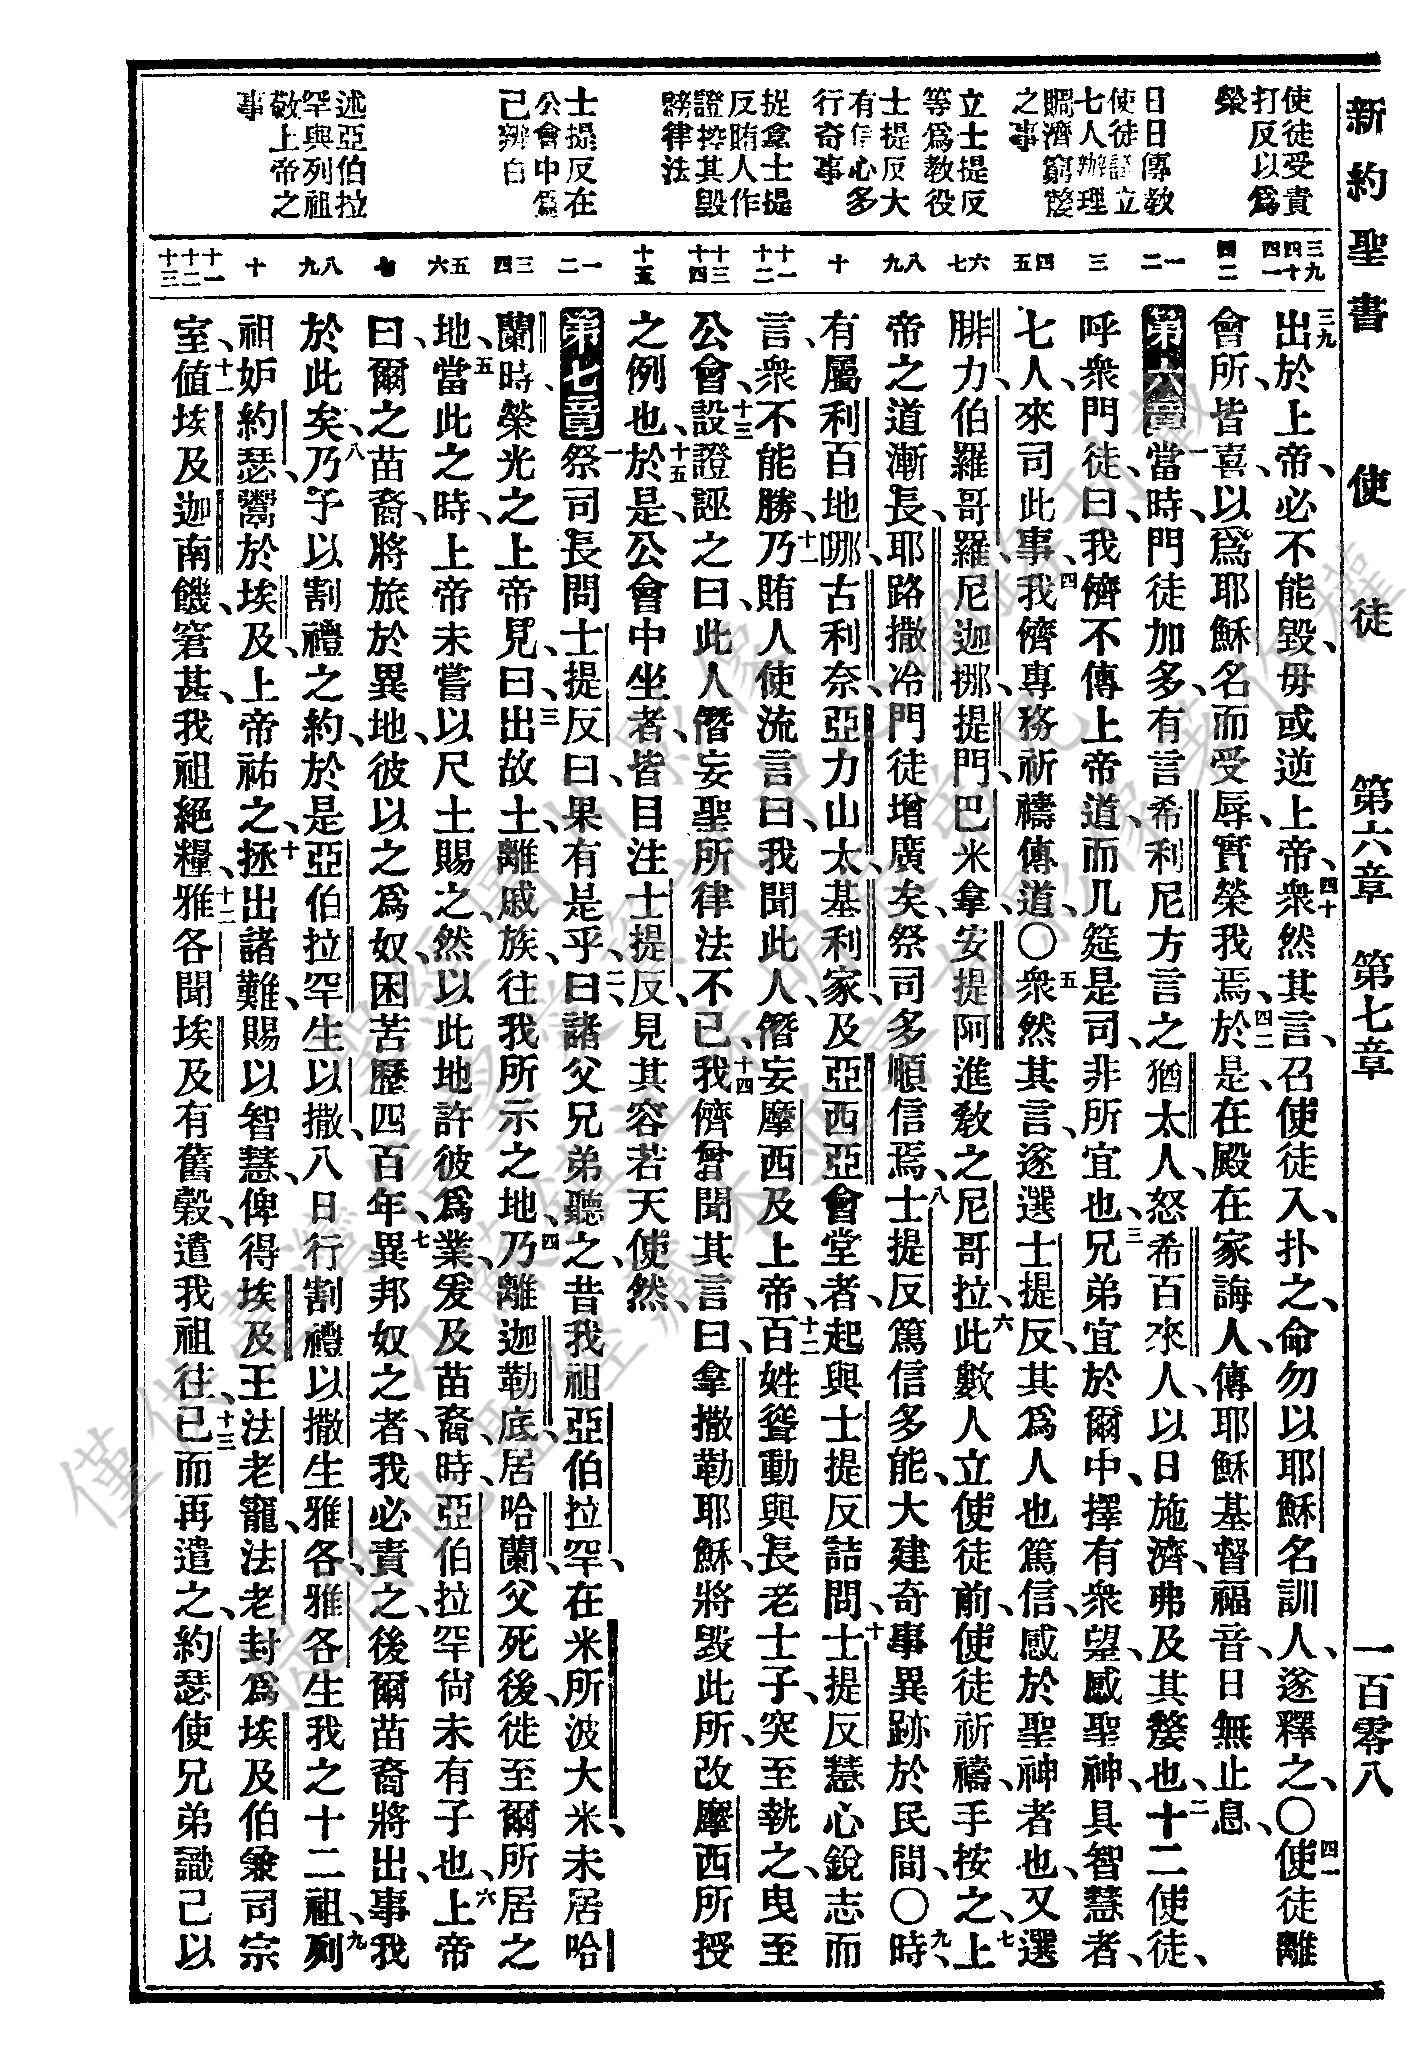 新約聖書　使徒　第六章　第七章　一百零八
使徒受責
打反以爲
榮
日日傳敎
使徒議立
七人辦理
賙濟窮嫠
之事
立士提反
等爲敎役
士提反大
有信心多
行奇事
捉拿士提
反賄人作
證控其毀
謗律法
士提反在
公會中爲
己辨白
述亞伯拉
罕與列祖
敬上帝之
事
三九
四十
四一
四二
一
二
三
四
五
六
七
八
九
十
十一
十二
十三
十四
十五
一
二
三
四
五
六
七
八
九
十
十一
十二
十三
三九出於上帝、必不能毀、毋或逆上帝、四十衆然其言、召使徒入、扑之、命勿以耶穌名訓人、遂釋之、〇四一使徒離
會所、皆喜、以爲耶穌名而受辱、實榮我焉、四二於是、在殿在家、誨人、傳耶穌基督福音、日無止息、
第六章一當時、門徒加多、有言希利尼方言之猶太人、怒希百來人、以日施濟、弗及其嫠也、二十二使徒、
呼衆門徒曰、我儕不傳上帝道、而几筵是司、非所宜也、三兄弟宜於爾中、擇有衆望、感聖神、具智慧者、
七人、來司此事、四我儕專務祈禱傳道、〇五衆然其言、遂選士提反、其爲人也篤信、感於聖神者也、又選
腓力、伯羅哥羅、尼迦挪、提門、巴米拿、安提阿進敎之尼哥拉、六此數人立使徒前、使徒祈禱、手按之、七上
帝之道漸長、耶路撒冷門徒增廣矣、祭司多順信焉、八士提反篤信多能、大建奇事異跡於民間、〇九時、
有屬利百地哪、古利奈、亞力山太、基利家、及亞西亞、會堂者、起與士提反詰問、十士提反慧心銳志而
言、衆不能勝、十一乃賄人使流言曰、我聞此人僭妄摩西及上帝、十二百姓聳動、與長老士子、突至執之、曳至
公會、十三設證誣之曰、此人僭妄聖所律法不已、十四我儕曾聞其言曰、拿撒勒耶穌、將毀此所、改摩西所授
之例也、十五於是、公會中坐者、皆目注士提反、見其容若天使然、
第七章一祭司長問士提反曰、果有是乎、二曰、諸父兄弟聽之、昔我祖亞伯拉罕、在米所波大米、未居哈
蘭時、榮光之上帝見、三曰、出故土、離戚族、往我所示之地、四乃離迦勒底、居哈蘭、父死後、徙至爾所居之
地、五當此之時、上帝未嘗以尺土賜之、然以此地許彼爲業、爰及苗裔、時、亞伯拉罕尙未有子也、六上帝
曰、爾之苗裔、將旅於異地、彼以之爲奴、困苦歷四百年、七異邦奴之者、我必責之、後爾苗裔將出、事我
於此矣、八乃予以割禮之約、於是亞伯拉罕生以撒、八日行割禮、以撒生雅各、雅各生我之十二祖、九列
祖妒約瑟、鬻於埃及、上帝祐之、十拯出諸難、賜以智慧、俾得埃及王法老寵、法老封爲埃及伯、兼司宗
室、十一値埃及迦南饑、窘甚、我祖絕糧、十二雅各聞埃及有舊穀、遣我祖往、十三已而再遣之、約瑟使兄弟識己、以